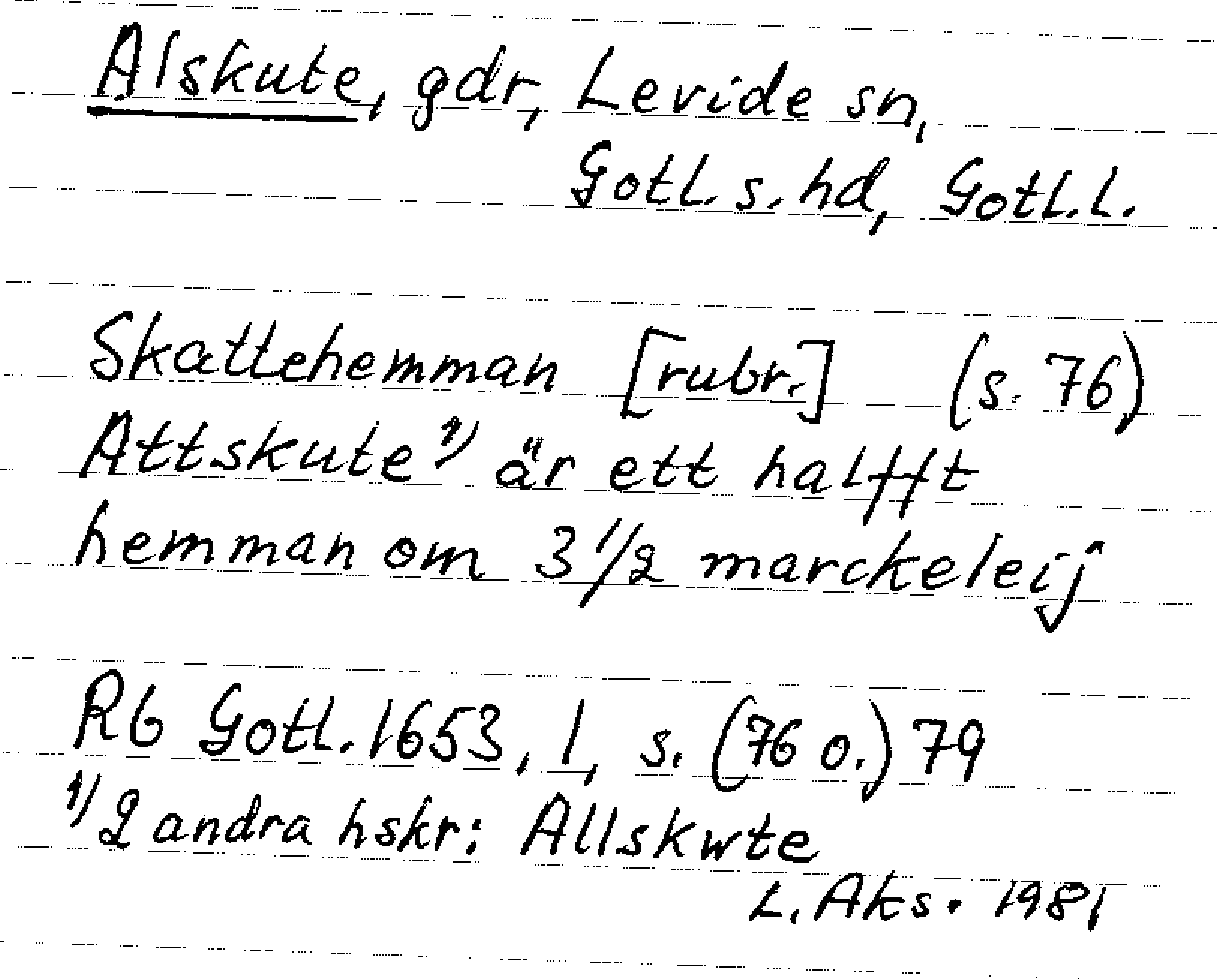 Alskute, gdr, Levide sn,
Gotl. s. hd, Gotl. l.
Skattehemman [rubr.] (s. 76)
Attskute 1) är ett halfft
hemman om 3 1/2 marckeleij
Rb Gotl. 1653, 1, s. (76 o.) 79
1) 2 andra hskr: Allskwte
L. Aks. 1981